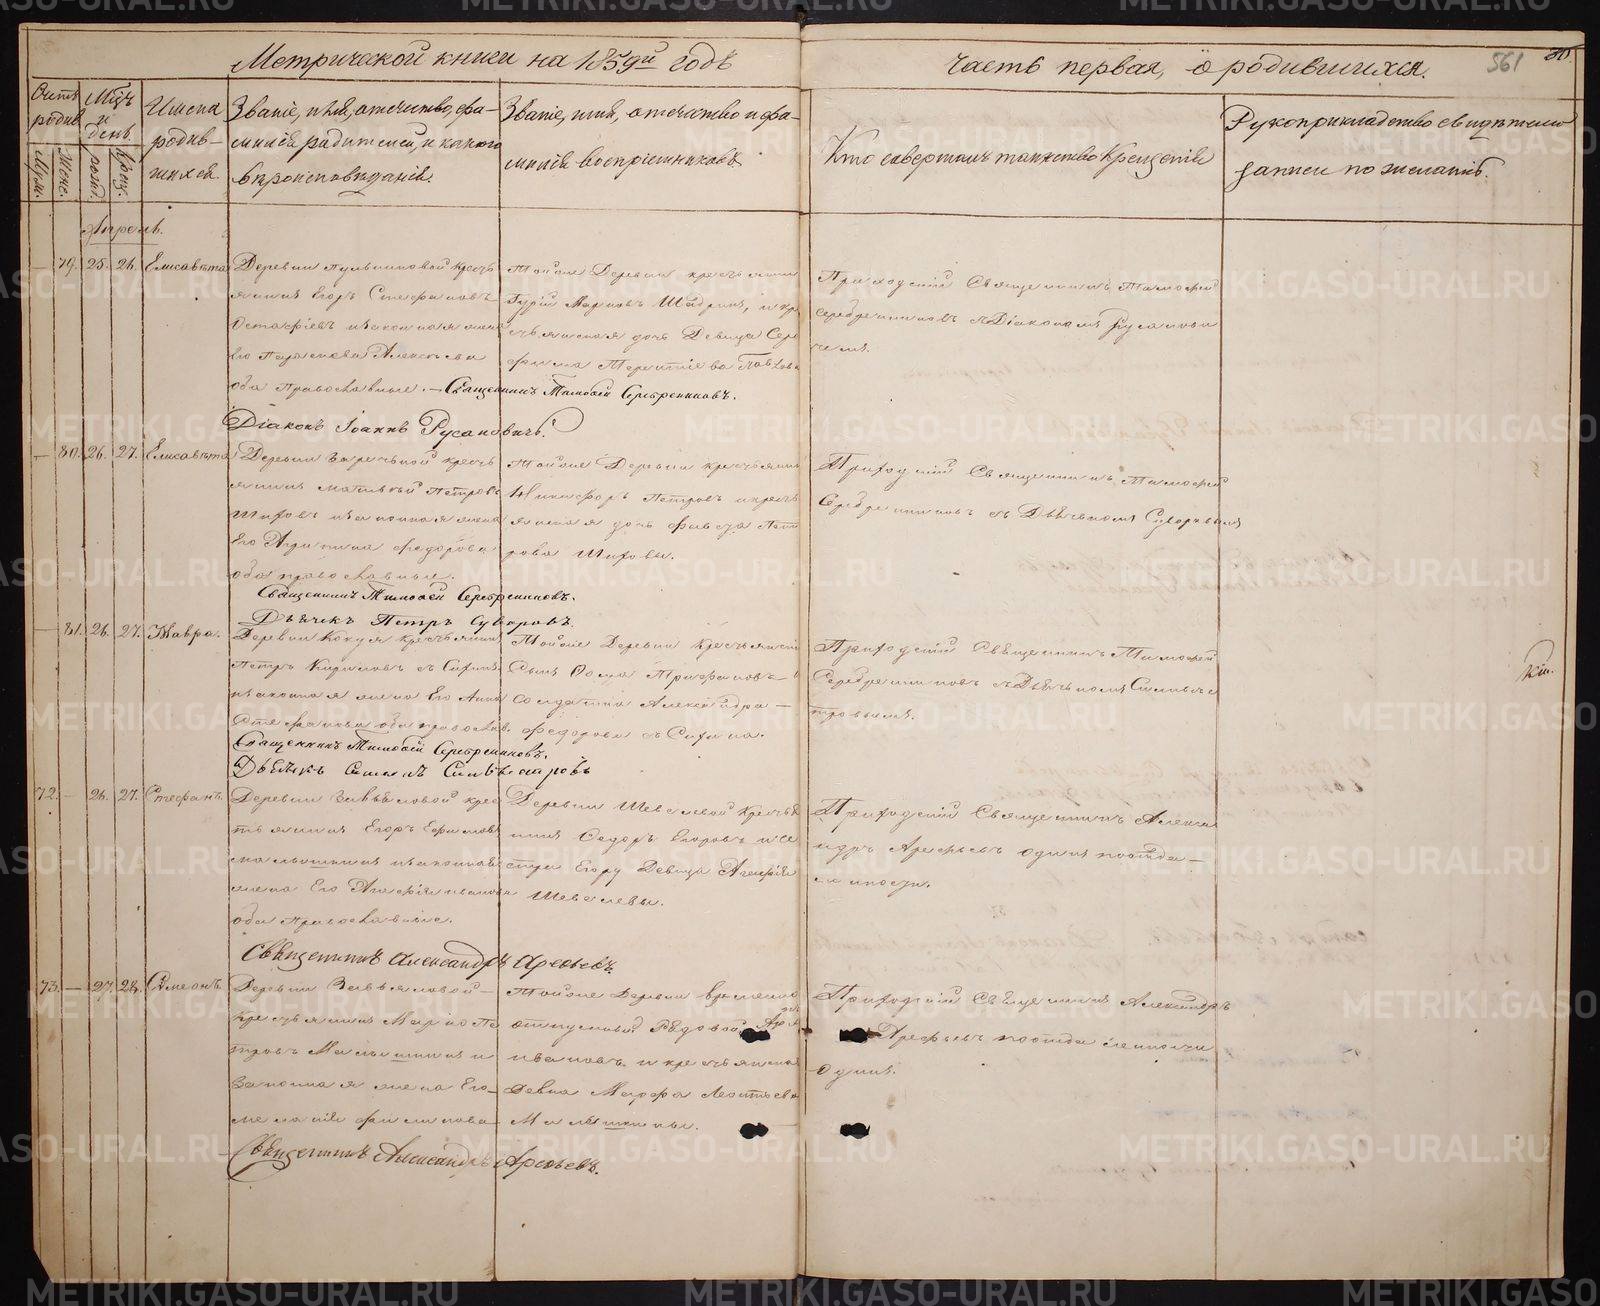 Метрической книги на 1859й годъ
часть первая, о родившихся.
561
Счетъ родив.
Муж.
Жене.
Мѣц. и день
рожд.
Крещ.
Имена
родив-
шихся.
Званіе, имя, отечество, фа-
милія родителей, и какого
вѣроисповѣданія.
Званіе, имя, отечество и фа-
милія воспріемниковъ.
Кто совершалъ таинство Крещенія
Рукоприкладство свидѣтелей
записи по желанію.
Апрель.
— 79. 25. 26. Елисавѣта
Деревни Кресть
янинъ Егоръ Стефановъ
Остафіевъ изаконная жена
его Парасковѣа Алексѣева
оба Православные. — Священникъ Тимофей Серебренниковъ.
Діаконъ Іоаннъ Русановичъ.
Тойже Деревни крестьянинъ
Гурій Марковъ, икре
стьянская дочь Девица Сера
фима Терентіева
Приходскій Священникъ Тимофей
Серебренниковъ съ Діакономъ Русанови
чемъ.
— 80. 26. 27. Елисавѣта
Деревни Заречной кресть
янинъ Матвей Петровъ
Шиховъ изаконная жена
Его Агрипина Федорова
оба православные.
Священникъ Тимофей Серебренниковъ.
Дьячекъ Петръ Суворовъ.
Тойже Деревни крестьянинъ
Никифоръ Петровъ икресть
янская дочь Фивеза Пет
рова Шиховы.
Приходскій Священникъ Тимофей
Серебренниковъ съ Дьячкомъ Суворовымъ
— 81. 26. 27. Мавра.
Деревни Кокуя крестьянинъ
Петръ Кириловъ
изаконная жена Его Анна
Стефанова оба православ.
Священникъ Тимофей Серебренниковъ.
Дьячекъ Симеонъ Сильвестровъ
Тойже Деревни Крестьянскій
Сынъ Фома Трифоновъ
Солдатка Александра —
Федорова
Приходскій Священникъ Тимофей
Серебренниковъ съ Дьячкомъ Сильвес
тровымъ.
72. — 26. 27. Стефанъ.
Деревни Завьяловой крес
тьянинъ Егоръ Ефимовъ
Малышкинъ изаконная
жена Его Агафія Иванова
оба Православные.
Священникъ Александръ Арефьевъ.
Деревни Шевелевой Крестья
нинъ Федоръ Егоровъ исе
стра Егору Девица Агафія
Шевелевы.
Приходскій Священникъ Алекса
ндръ Арефьевъ одинъ поотда-
ленности.
73. — 27. 28. Симеонъ.
Деревни Завьяловой —
Крестьянинъ Марко Пе
тровъ Малышкинъ и
Законная жена Его —
Меланія Филипова —
Священникъ Александръ Арефьевъ.
Тойже Деревни временно
отпускной Рядовой
Ивановъ. и крестьянская
Девка Марфа Леонтьева
Малышкины.
Приходскій Священникъ Александръ
Арефьевъ поотдаленности
Одинъ.
METRIKI.GASO-URAL.RU